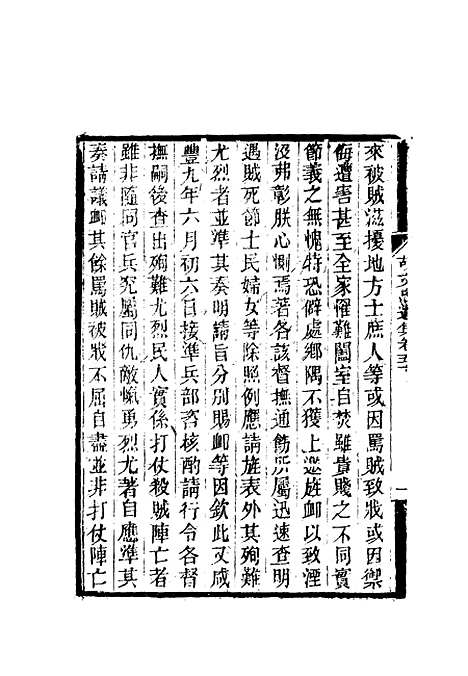 來被賊滋擾地方士庶人等或因罵賊致戕或因禦
侮遭害甚至全家罹難闔室自焚雖貴賤之不同實
節義之無愧特恐僻處鄉隅不獲上邀旌卹以致湮
沒弗彰朕心惻焉著各該督撫通飭所屬迅速查明
遇賊死節士民婦女等除照例應請旌表外其殉難
尤烈者並準其奏明請旨分別賜卹等因欽此又咸
豐九年六月初六日接準兵部咨核酌請行令各督
撫嗣後查出殉難尤烈民人實係打仗殺賊陣亡者
雖非隨同官兵究屬同仇敵愾勇烈尤著自應準其
奏請議卹其餘罵賊被戕不屈自盡並非打仗陣亡